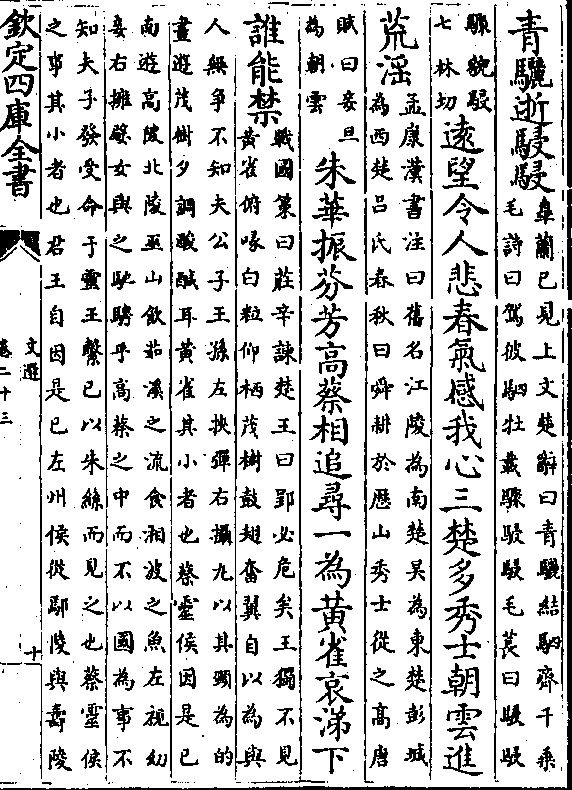 青驪逝駸駸臯蘭已見上文楚辭曰青驪結駟齊千乘
毛詩曰駕彼駟牡載驟駸駸毛萇曰駸駸
驟貌駸
七林切遠望令人悲春氣感我心三楚多秀士朝雲進
荒淫孟康漢書注曰舊名江陵為南楚吴為東楚彭城
為西楚吕氏春秋曰舜耕於歴山秀士從之高唐
賦曰妾旦
為朝雲朱華振芬芳高蔡相追尋一為黄雀哀涕下
誰能禁戰國策曰莊辛諫楚王曰郢必危矣王獨不見
黄雀俯啄白粒仰栖茂樹鼓翅奮翼自以為與
人無爭不知夫公子王孫左挾彈右攝丸以其頸為的
晝遊茂樹夕調酸醎耳黄雀其小者也蔡靈侯因是已
南遊高陂北陵巫山飲茹溪之流食湘波之魚左視幼
妾右擁嬖女與之馳騁乎高蔡之中而不以國為事不
知夫子發受命于靈王繫已以朱絲而見之也蔡靈侯
之事其小者也君王自因是已左州侯從鄢陵與夀陵
欽定四庫全書
文選
卷二十三
十